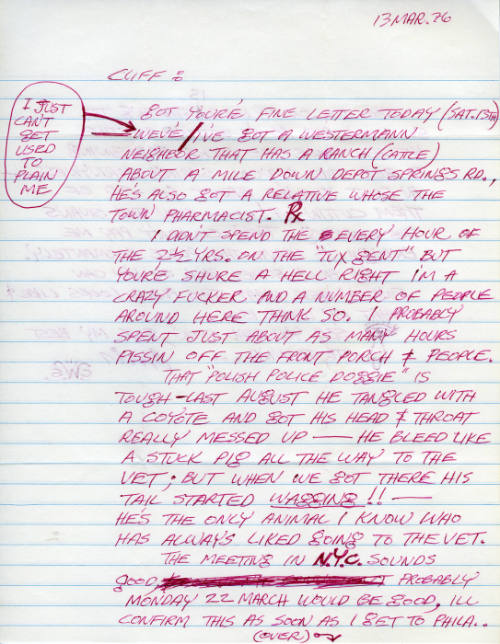 13 MAR. 76
CLIFF :
I JUST
CAN'T
GET
USED
TO
PLAIN
ME
GOT YOUR'E FINE LETTER TODAY (SAT. 13TH)
WE'VE / I'VE GOT A WESTERMANN
NEIGHBOR THAT HAS A RANCH (CATTLE)
ABOUT A MILE DOWN DEPOT SPRINGS RD.,
HE'S ALSO GOT A RELATIVE WHOSE THE
TOWN PHARMACIST. Rx
I DIDN'T SPEND THE EVERY HOUR OF
THE 2½ YRS. ON THE "TUX GENT" BUT
YOUR'E SHURE A HELL RIGHT I'M A
CRAZY FUCKER AND A NUMBER OF PEOPLE
AROUND HERE THINK SO. I PROBABLY
SPENT JUST ABOUT AS MANY HOURS
PISSIN OFF THE FRONT PORCH & PEOPLE.
THAT "POLISH POLICE DOGGIE" IS
TOUGH - LAST AUGUST HE TANGLED WITH
A COYOTE AND GOT HIS HEAD & THROAT
REALLY MESSED UP — HE BLEED LIKE
A STUCK PIG ALL THE WAY TO THE
VET, BUT WHEN WE GOT THERE HIS
TAIL STARTED WAGGING !! —
HE'S THE ONLY ANIMAL I KNOW WHO
HAS ALWAYS LIKED GOING TO THE VET.
THE MEETING IN N.Y.C. SOUNDS
GOOD, PROBABLY
MONDAY 22 MARCH WOULD BE GOOD, ILL
CONFIRM THIS AS SOON AS I GET TO PHILA..
(OVER)